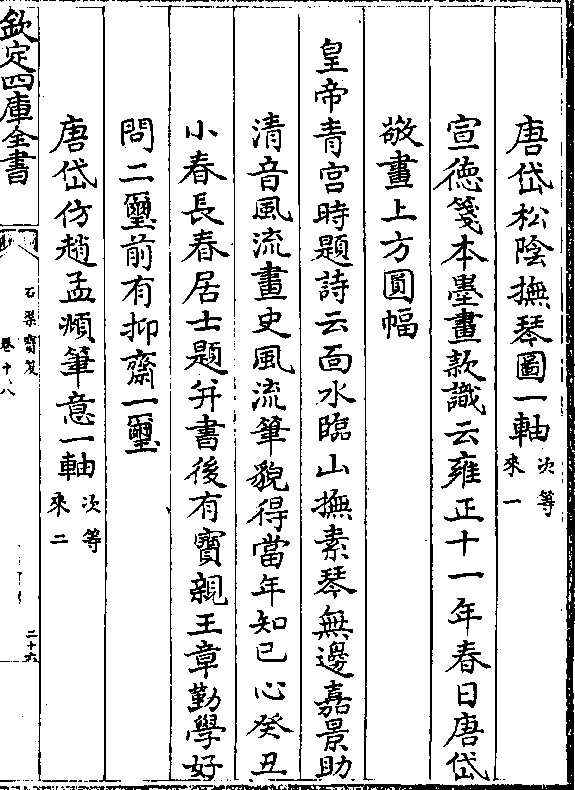 唐岱松陰撫琴圖一軸次等來一
宣德箋本墨畫款識云雍正十一年春日唐岱
敬畫上方圓幅
皇帝青宮時題詩云面水臨山撫素琴無邊嘉景助
清音風流畫史風流筆貌得當年知已心癸丑
小春長春居士題并書後有寶親王章勤學好
問二璽前有抑齋一璽
唐岱仿趙孟頫筆意一軸次等來二
欽定四庫全書
石渠寶笈
卷十八
二十六